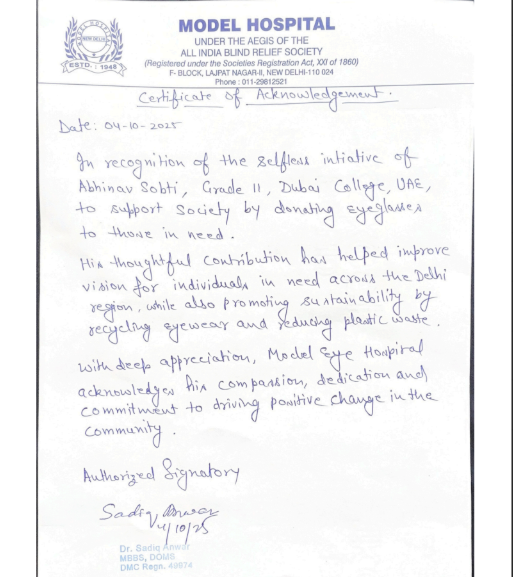 MODEL HOSPITAL
UNDER THE AEGIS OF THE
ALL INDIA BLIND RELIEF SOCIETY
(Registered under the Societies Registration Act, XXI of 1860)
F- BLOCK, LAJPAT NAGAR-II, NEW DELHI-110 024
Phone : 011-29812521
NEW DELHI
ESTD. : 1946
Certificate of Acknowledgement.
Date: 04-10-2025
In recognition of the selfless intiative of
Abhinav Sobti, Grade 11, Dubai College, UAE,
to support society by donating eyeglasses
to those in need.
His thoughtful contribution has helped improve
vision for individuals in need across the Delhi
region, while also promoting sustainability by
recycling eyewear and reducing plastic waste.
With deep appreciation, Model Eye Hospital
acknowledges his compassion, dedication and
commitment to driving positive change in the
community.
Authorized Signatory
Sadiq Anwar
4/10/25
Dr. Sadiq Anwar
MBBS, DOMS
DMC Regn. 49874